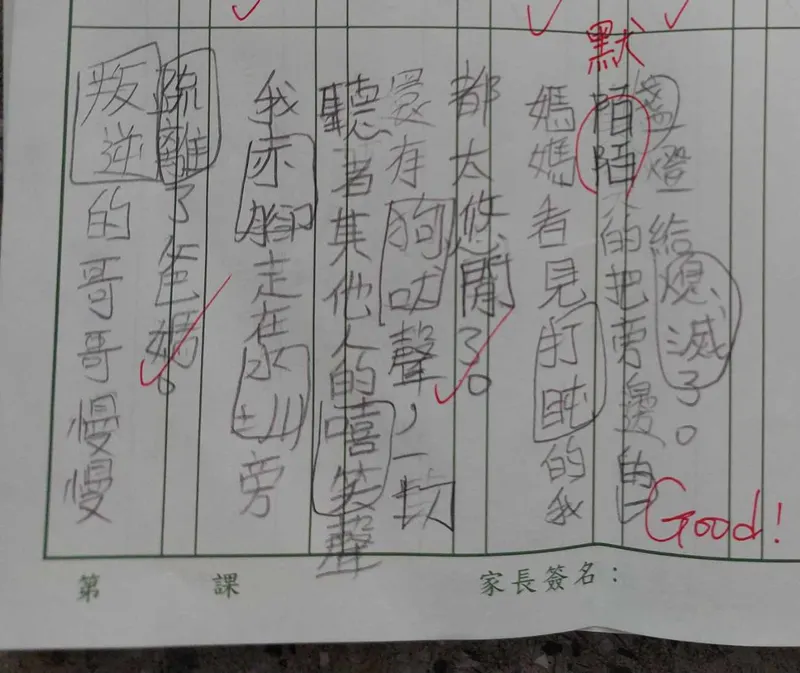 叛逆的哥哥慢慢
疏離了爸媽。
我赤腳走在水圳旁
聽著其他人的嘻笑聲
還有狗吠聲，一切
都太悠閒了。
媽媽看見打盹的我
默
陌陌的把旁邊的
盞燈給熄滅了。
Good!
第 課 家長簽名：